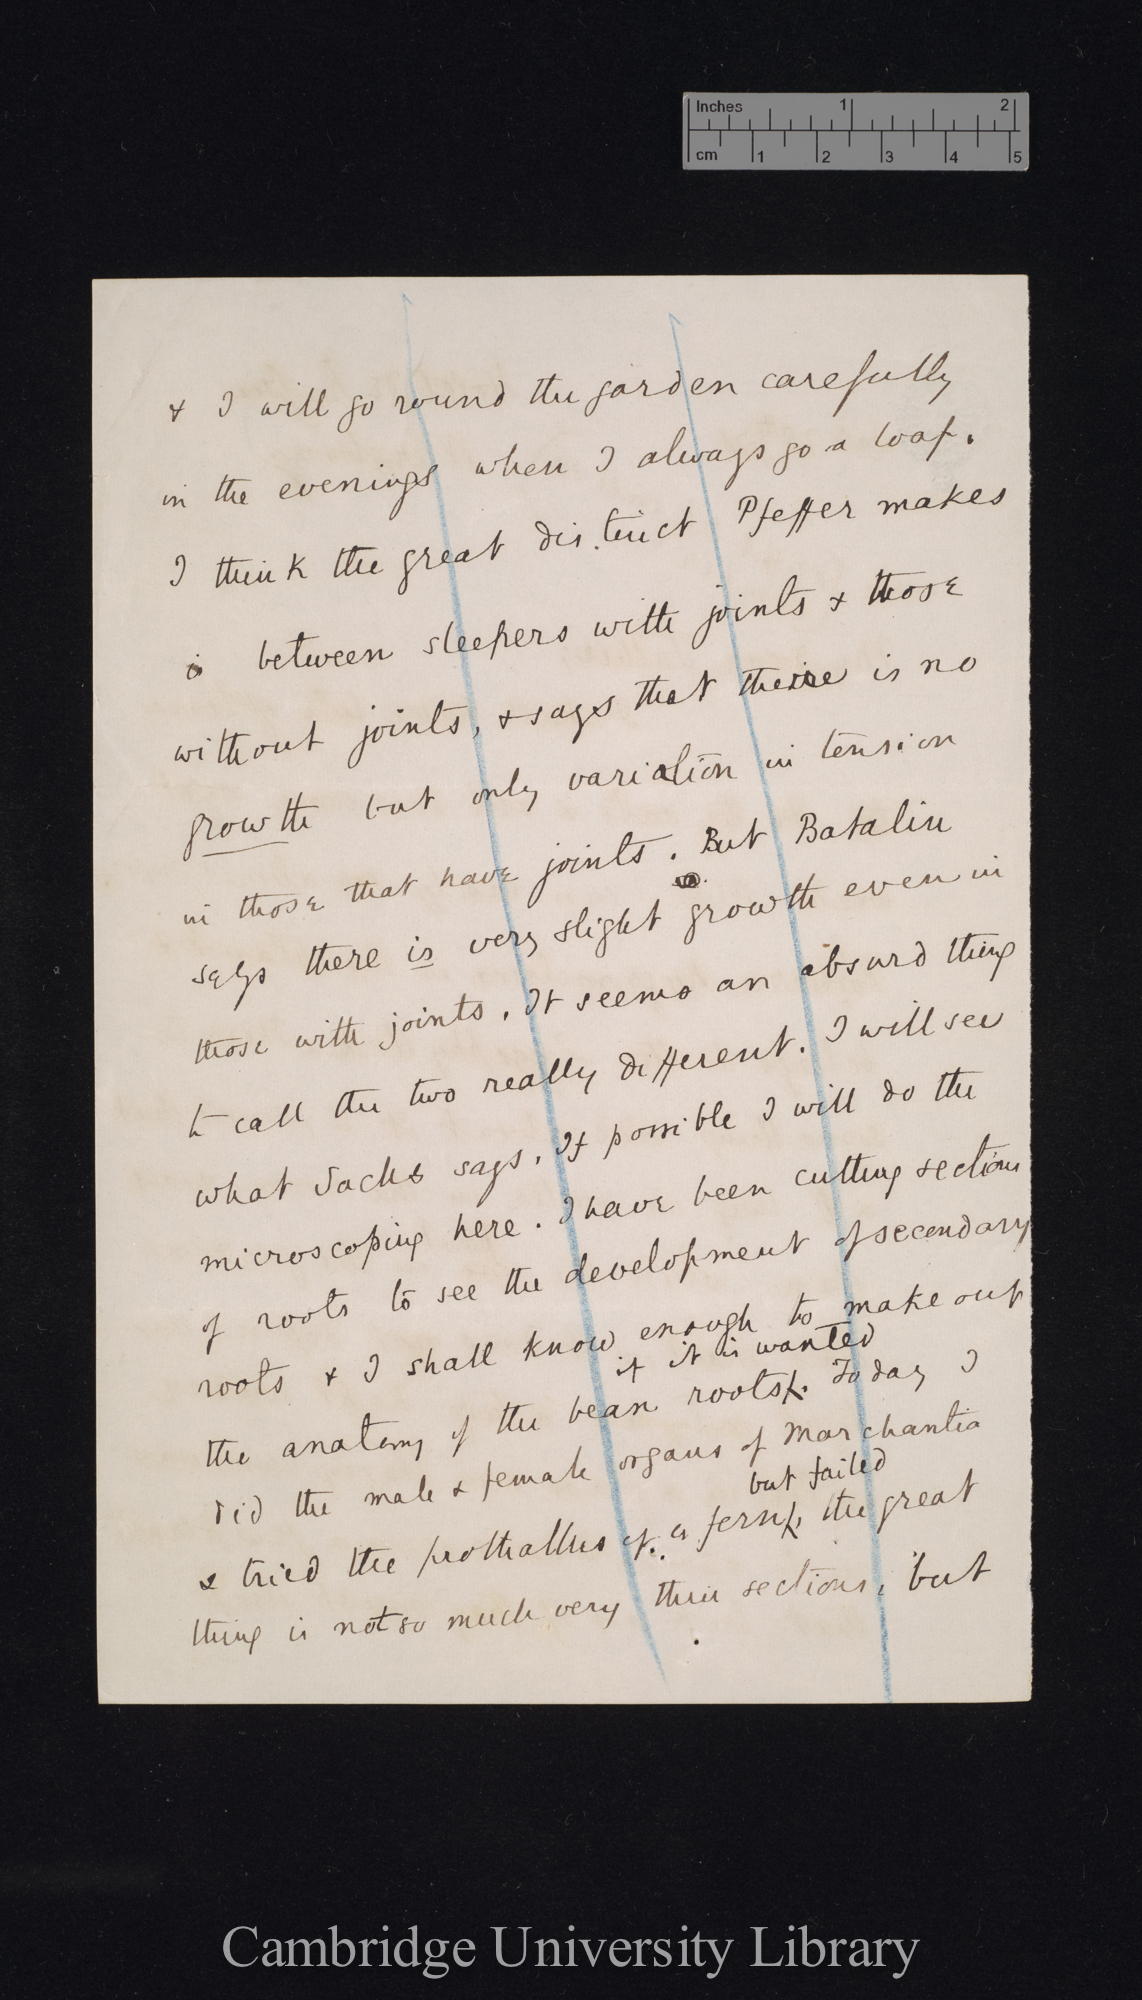 Inches 1 2
cm 1 2 3 4 5
& I will go round the garden carefully
in the evenings when I always go a loaf.
I think the great distinct Pfeffer makes
is between sleepers with joints & those
without joints, & says that there is no
growth but only variation in tension
in those that have joints. But Batalin
says there is very slight growth even in
those with joints. It seems an absurd thing
to call the two really different. I will see
what Sachs says. If possible I will do the
microscoping here. I have been cutting sections
of roots to see the development of secondary
roots & I shall know enough to make out
if it is wanted
the anatomy of the bean roots. Today I
did the male & female organs of Marchantia
but failed
& tried the prothallus of a fern, the great
thing is not so much very thin sections, but
Cambridge University Library